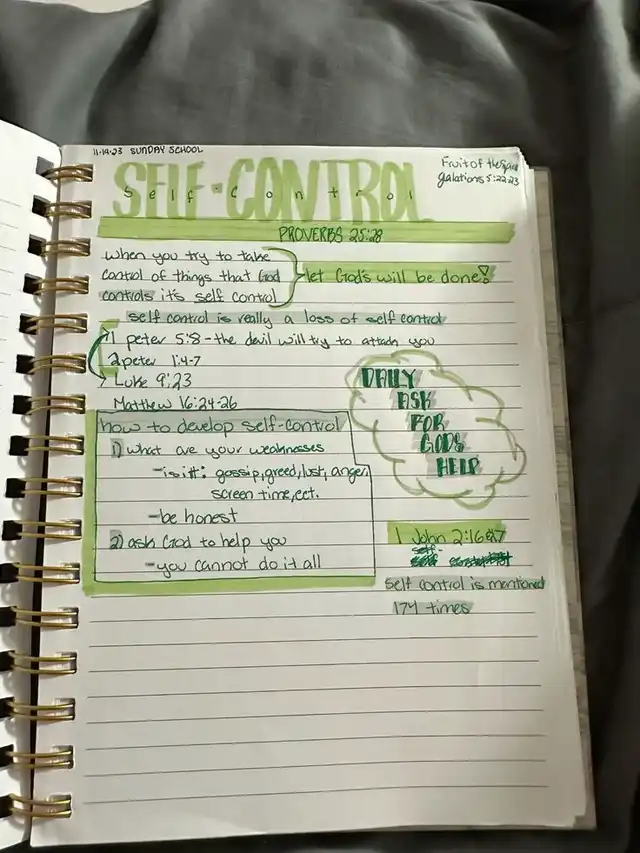 11-19-23 SUNDAY SCHOOL
Fruit of the
galations 5:22-23
SELF-CONTROL
Self-Control
PROVERBS 25:28
when you try to take
control of things that God
controls it's self control
let God's will be done!
self control is really a loss of self control
1 peter 5:8 - the devil will try to attach you
2 peter 1:4-7
Luke 9:23
Matthew 16:24-26
DAILY
ASK
FOR
GODS
HELP
how to develop self-control
1) what are your weaknesses
- is it: gossip, greed, lust, anger,
screen time, ect.
- be honest
2) ask God to help you
- you cannot do it all
1 John 2:16
self
self control is mentioned
174 times